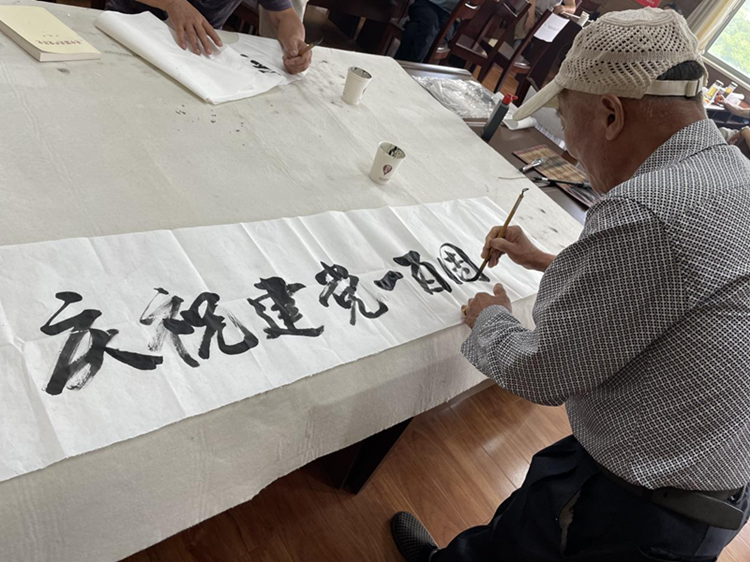 庆祝建党一百周